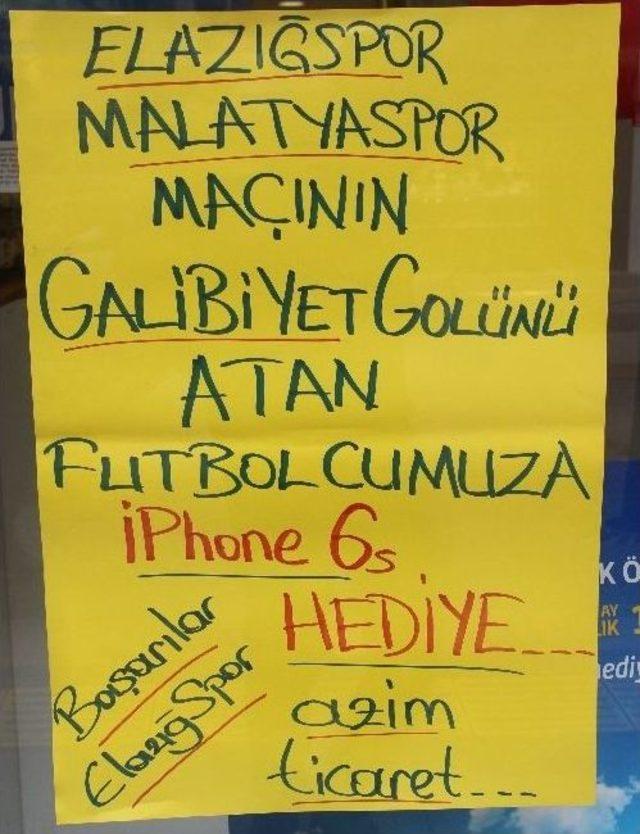 ELAZIĞSPOR
MALATYASPOR
MAÇININ
GALİBİYET GOLÜNÜ
ATAN
FUTBOLCUMUZA
iPhone 6s
HEDİYE...
Başarılar
ElazığSpor
azim
ticaret...
K Ö
AY
IK 1
hediy